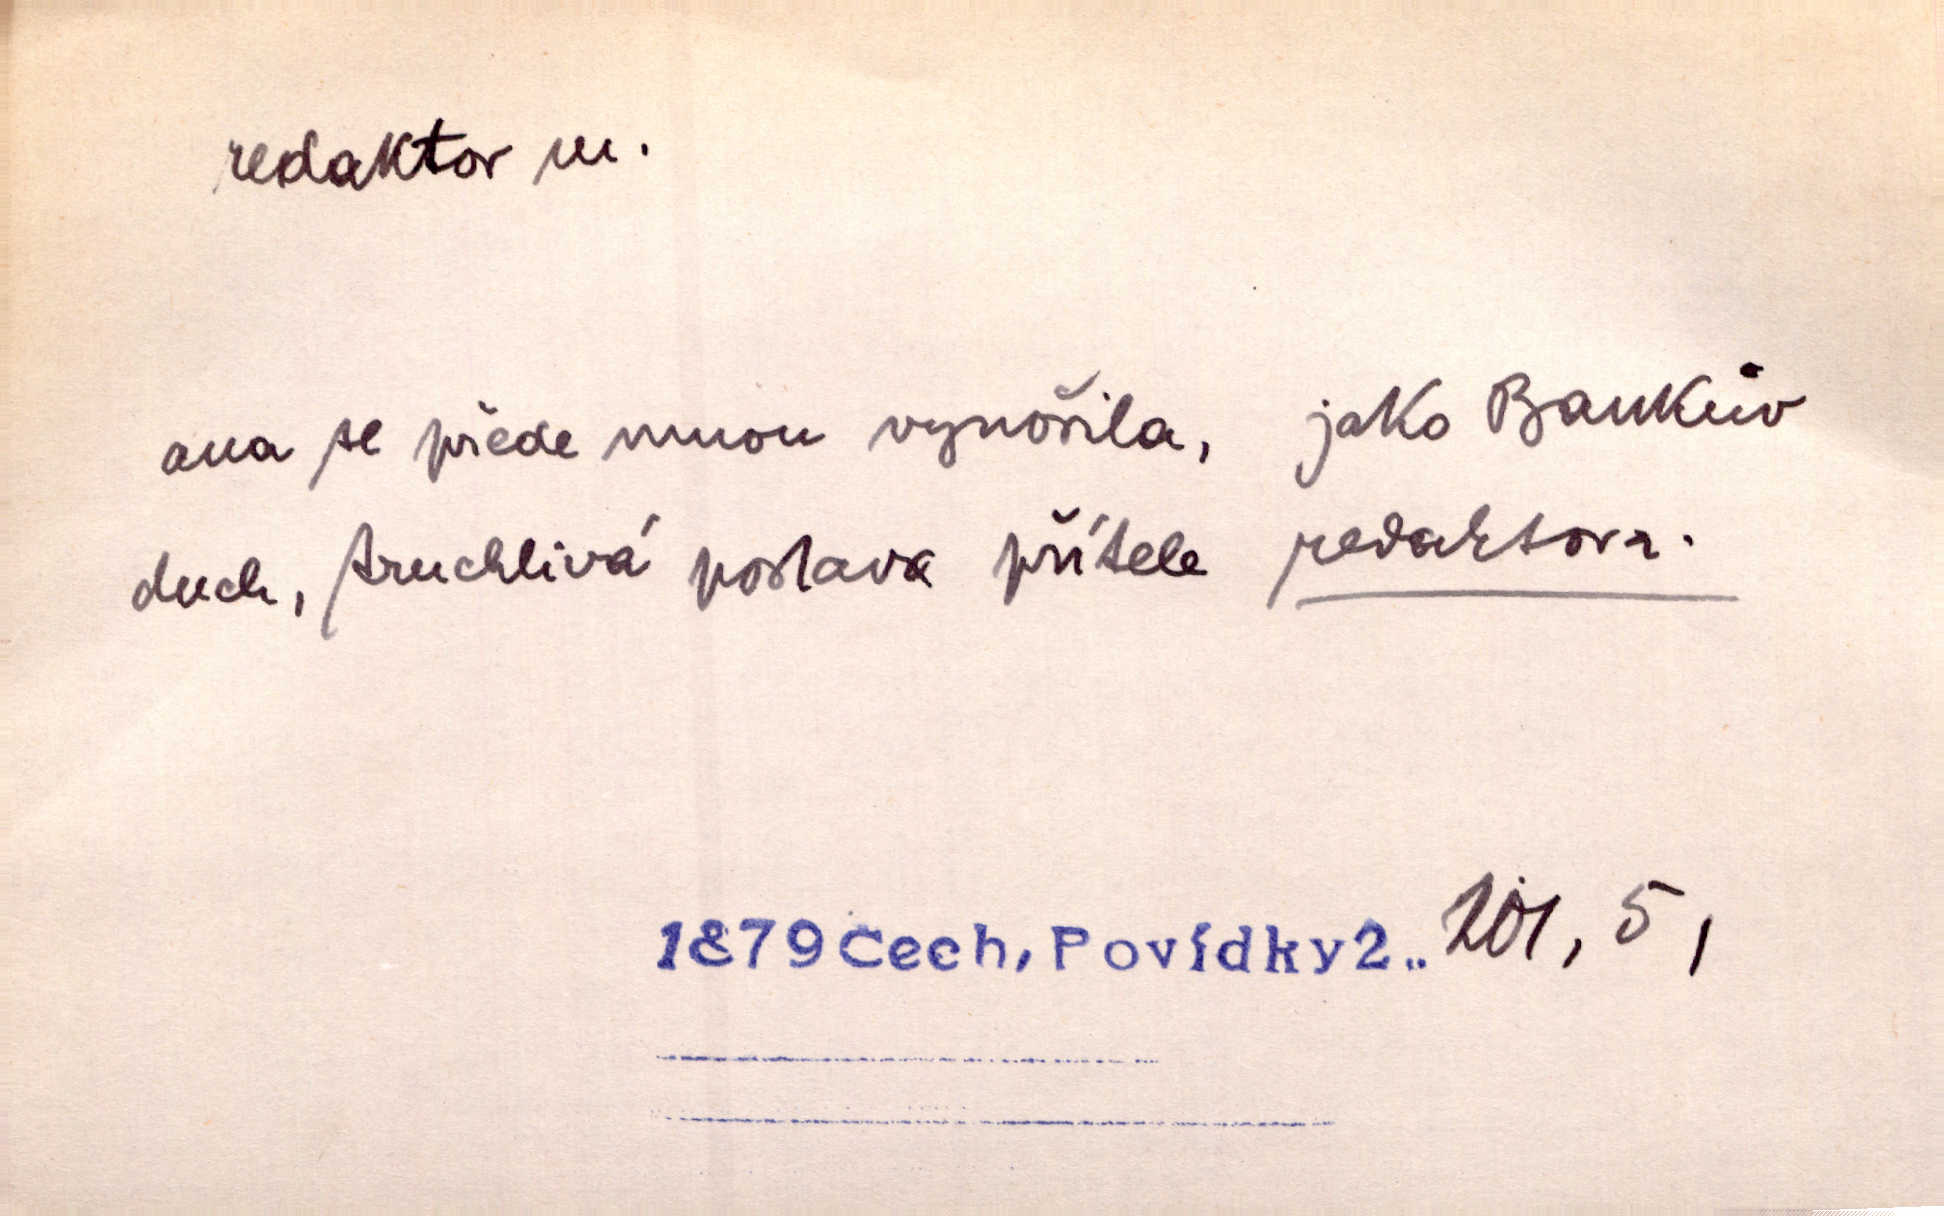 redaktor m.
ana se přede mnou vynořila, jako Bankův
duch, truchlivá postava přítele redaktora.
1879 Čech, Povídky 2.. 201, 5,